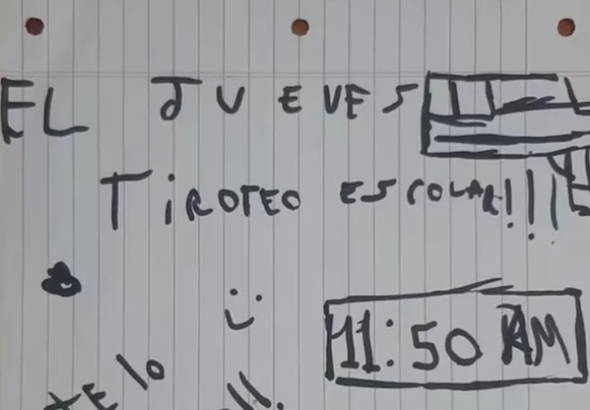 EL JUEVES
TiROTEO ESCOLAR!!!
:)
11:50 AM